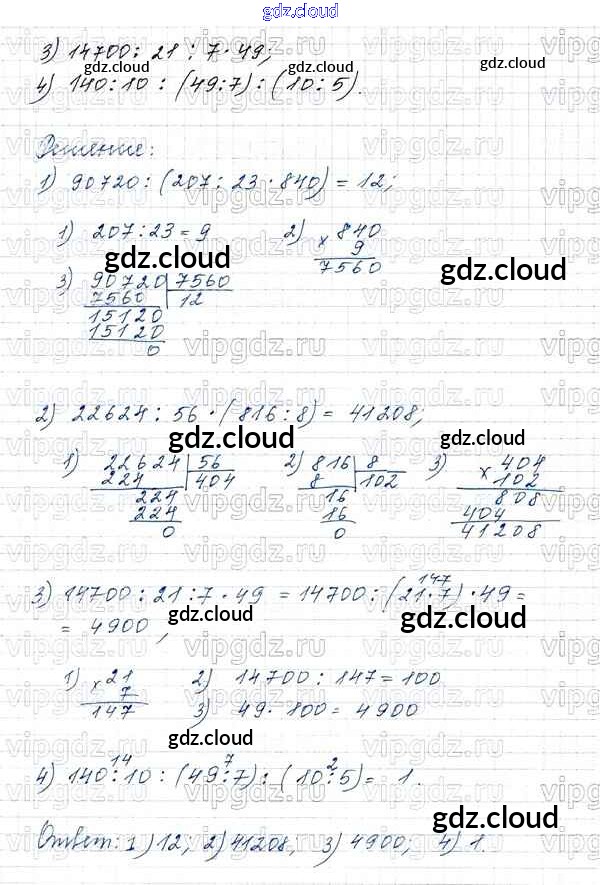 gdz.cloud
3) 14700 : 21 : 7 · 49;
4) 140 : 10 : (49 : 7) : (10 : 5).
Решение:
1) 90720 : (207 : 23 · 840) = 12;
1) 207 : 23 = 9 2) × 840
9
7560
3) 90720 | 7560
7560 12
15120
15120
0
2) 22624 : 56 · (816 : 8) = 41208;
1) 22624 | 56 2) 816 | 8 3) × 404
224 404 8 102 102
224 16 808
224 16 404
0 0 41208
147
3) 14700 : 21 : 7 · 49 = 14700 : (21 · 7) · 49 =
= 4900,
1) × 21 2) 14700 : 147 = 100
7 3) 49 · 100 = 4900
147
14 7 2
4) 140 : 10 : (49 : 7) : (10 : 5) = 1.
Ответ: 1) 12; 2) 41208; 3) 4900; 4) 1.